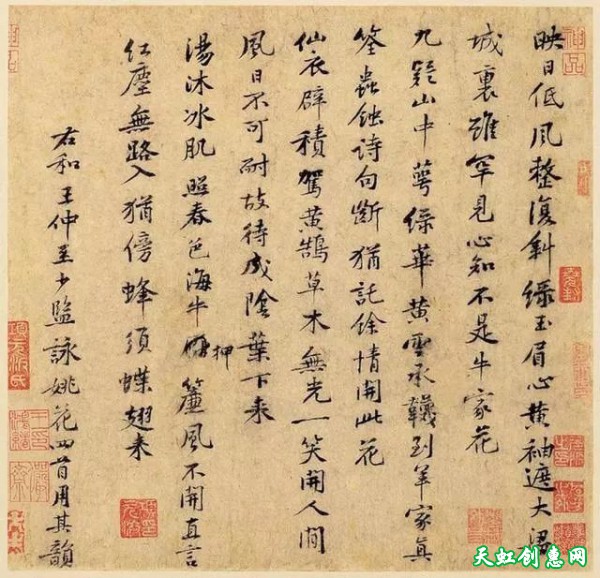 映日低風整復斜綠玉眉心黃袖遮大梁
城裏雖罕見心知不是牛家花
九疑山中萼綠華黃雲承韈到羊家真
筌蟲蝕詩句斷猶託餘情開此花
仙衣辟積駕黃鵠草木無光一笑開人間
風日不可耐故待成陰葉下來
湯沐冰肌照春色海牛押簾風不開直言
紅塵無路入猶傍蜂須蝶翅來
右和王仲至少監詠姚花四首用其韻
神品
天虹创意网